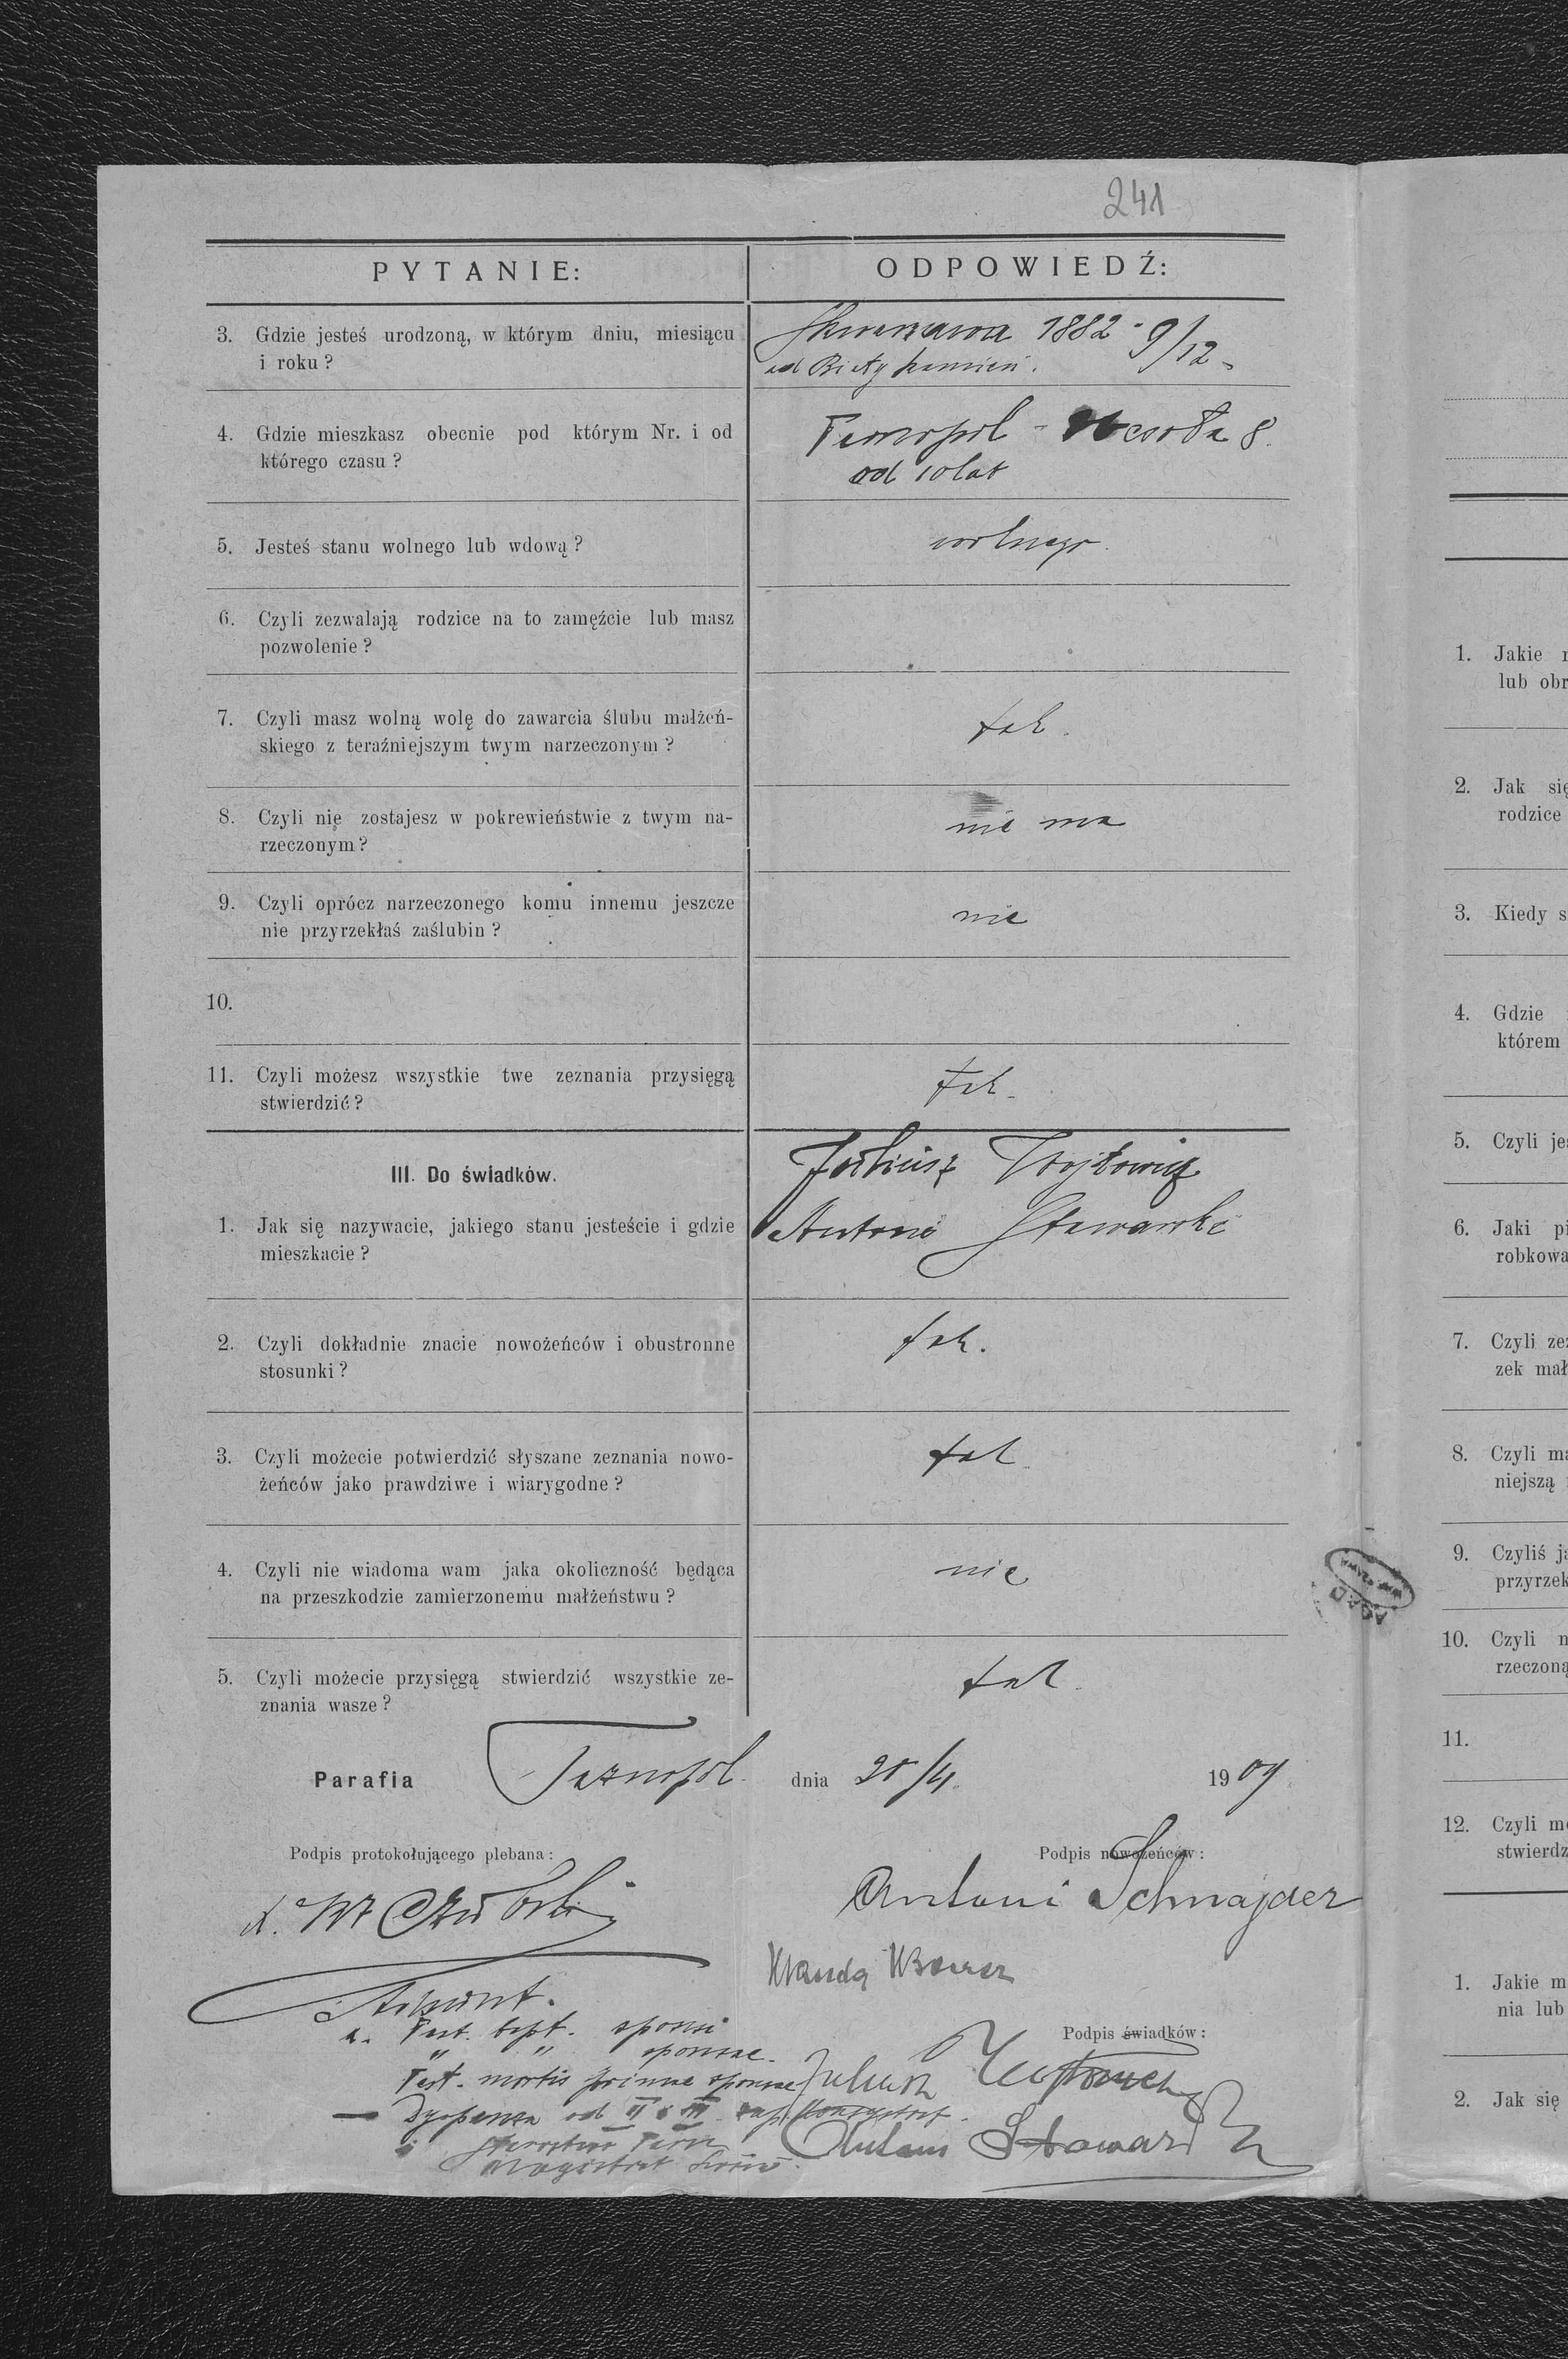 241
PYTANIE:
ODPOWIEDŹ:
3. Gdzie jesteś urodzoną, w którym dniu, miesiącu
i roku?
1882 - 9/12
4. Gdzie mieszkasz obecnie pod którym Nr. i od
którego czasu?
Tarnopol - 8.
od 10 lat
5. Jesteś stanu wolnego lub wdową?
wolnego.
6. Czyli zezwalają rodzice na to zamęźcie lub masz
pozwolenie?
7. Czyli masz wolną wolę do zawarcia ślubu małżeń-
skiego z teraźniejszym twym narzeczonym?
tak.
8. Czyli nie zostajesz w pokrewieństwie z twym na-
rzeczonym?
nie ma
9. Czyli oprócz narzeczonego komu innemu jeszcze
nie przyrzekłaś zaślubin?
nie
10.
11. Czyli możesz wszystkie twe zeznania przysięgą
stwierdzić?
tak.
III. Do świadków.
Juliusz Wojtowicz
1. Jak się nazywacie, jakiego stanu jesteście i gdzie
mieszkacie?
Antoni Stawarski
2. Czyli dokładnie znacie nowożeńców i obustronne
stosunki?
tak.
3. Czyli możecie potwierdzić słyszane zeznania nowo-
żeńców jako prawdziwe i wiarygodne?
tak
4. Czyli nie wiadoma wam jaka okoliczność będąca
na przeszkodzie zamierzonemu małżeństwu?
nie
5. Czyli możecie przysięgą stwierdzić wszystkie ze-
znania wasze?
tak.
Parafia Tarnopol dnia 1909
Podpis protokołującego plebana:
Podpis nowożeńców:
Antoni Schnajder
Wanda
Podpis świadków:
Test. bapt. sponsi
" " sponsae.
Test. mortis primae sponsae
Juliusz
Dyspensa od II i III
AGAD
1. Jakie
lub
2. Jak się
rodzice
3. Kiedy
4. Gdzie
którem
5. Czyli
6. Jaki
7. Czyli
zek
8. Czyli
niejszą
9. Czyliś
10. Czyli
rzeczoną
11.
12. Czyli
1. Jakie
nia lub
2. Jak się